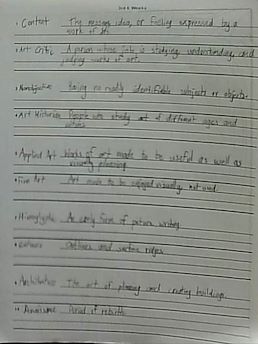 Content The message, idea, or feeling expressed by a
work of art
Art Critic A person whose job is studying, understanding, and
judging works of art.
Nonobjective Having no readily identifiable subjects or objects.
Art Historian People who study art of different ages and
Applied Art Works of art made to be useful as well as
visually pleasing
Fine Art Art made to be enjoyed visually, not used
Hieroglyphs An early form of picture writing
Outlines and surface ridges
Architecture The art of planning and creating buildings.
Renaissance Period of rebirth